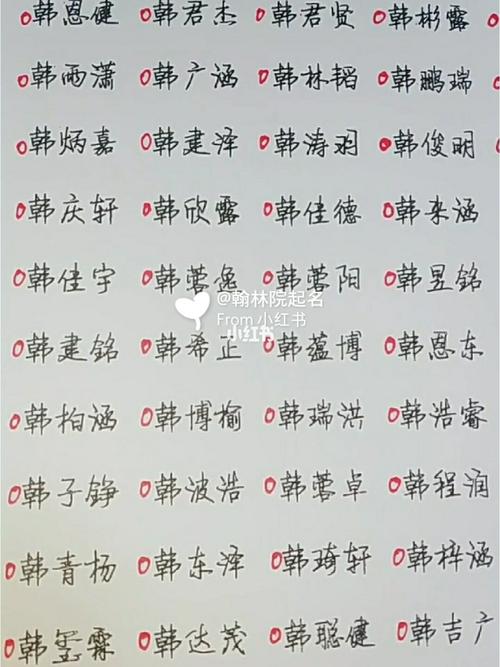 韩恩健 韩君杰 韩君贤 韩彬露
韩雨潇 韩广涵 韩林韬 韩鹏瑞
韩炳嘉 韩建泽 韩涛羽 韩俊明
韩庆轩 韩欣露 韩佳德 韩东涵
韩佳宇 韩蓉逸 韩蓉阳 韩昱铭
@翰林院起名
From 小红书
小红书
韩建铭 韩希正 韩蕴博 韩恩东
韩柏涵 韩博榆 韩瑞洪 韩浩睿
韩子铮 韩波浩 韩蓉卓 韩程润
韩青杨 韩东泽 韩琦轩 韩梓涵
韩霖 韩达茂 韩聪健 韩吉广